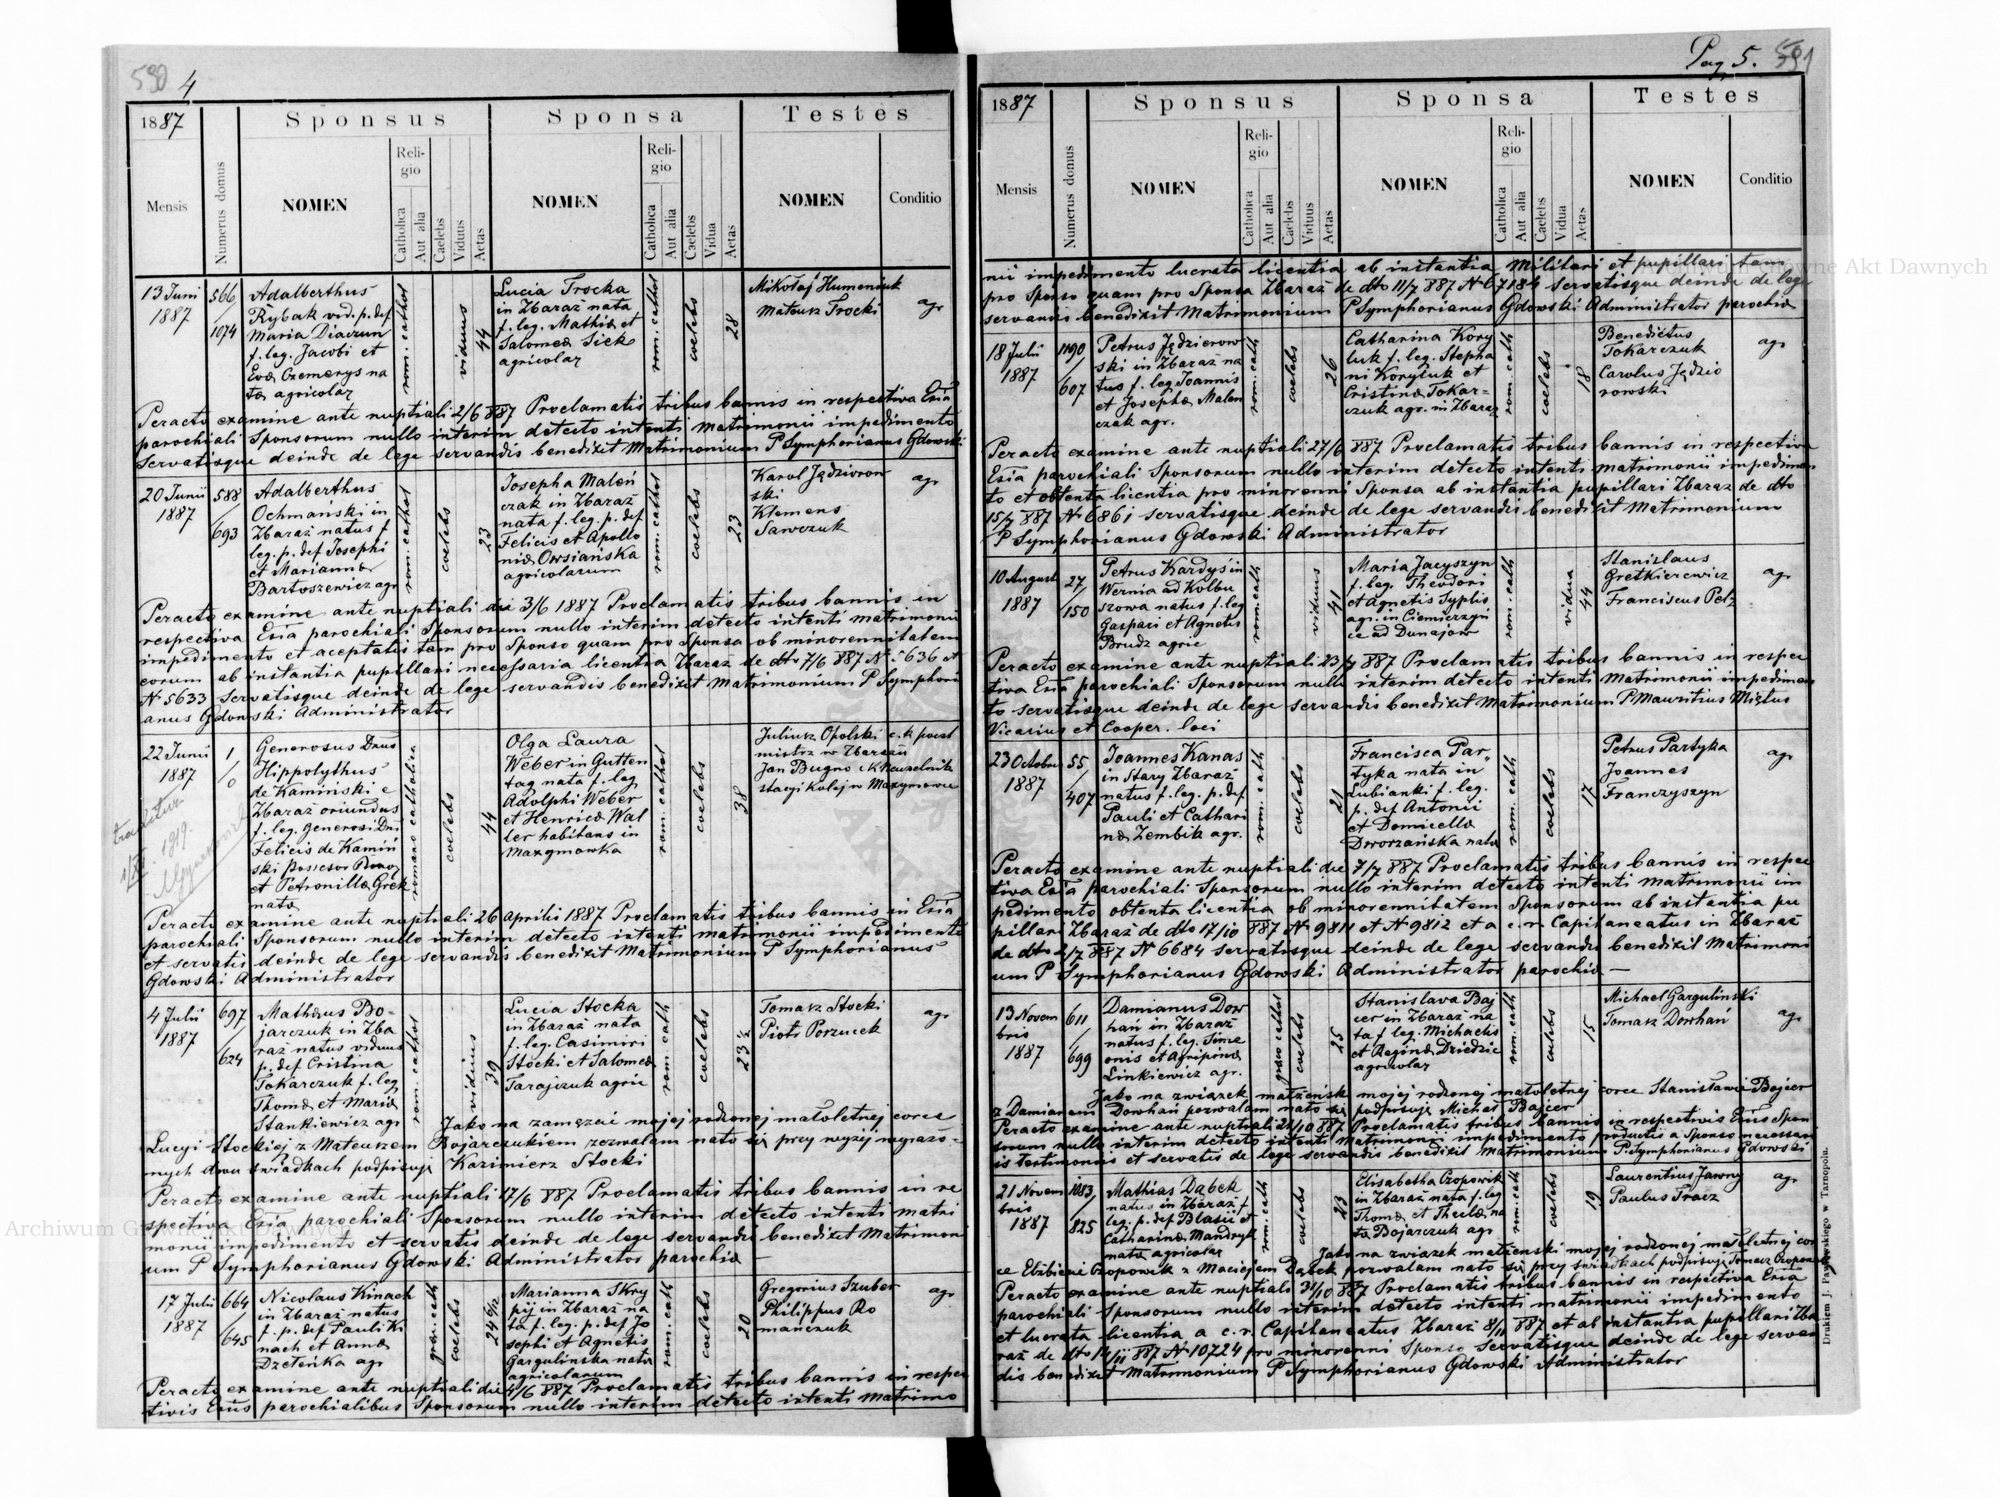 590 4
1887
Sponsus
Sponsa
Testes
Mensis
Numerus domus
NOMEN
Religio
Catholica
Aut alia
Caelebs
Viduus
Aetas
NOMEN
Religio
Catholica
Aut alia
Caelebs
Vidua
Aetas
NOMEN
Conditio
13 Junii
1887
566/
1074
Adalberthus
Rybak vid. p. def
Maria Diaczun
f. leg. Jacobi et
Eva Czemerys na
ta agricolar
rom. cathol
viduus
44
Lucia Trocka
in Zbaraż nata
f. leg. Mathia et
Salomea Siek
agricolar
rom. cathol
coelebs
28
Mikołaj Humeniuk
Mateusz Trocki
agr
Peracto examine ante nuptiali 2/6 887 Proclamatis tribus bannis in respectiva Ecsia
parochiali Sponsorum nullo interim detecto intenti matrimonii impedimento
Servatisque deinde de lege servandis benedixit Matrimonium P Symphorianus Gdowski
20 Junii
1887
588
/
693
Adalberthus
Ochmanski in
Zbaraż natus f
leg. p. def Josephi
et Marianna
Bartoszewicz agr
rom. cathol
coelebs
23
Josepha Maleń
czak in Zbaraż
nata f. leg. p. def
Felicis et Apollo
nia Owsiańska
agricolarum
rom. cathol
coelebs
23
Karol Jędzierow
ski
Klemens
Sawczuk
agr
Peracto examine ante nuptiali die 3/6 1887 Proclamatis tribus bannis in
respectiva Ecsia parochiali Sponsorum nullo interim detecto intenti matrimonii
impedimento et aceptatis tam pro Sponso quam pro Sponsa ob minorennitatem
eorum ab instantia pupillari necessaria licentia Zbaraż de dto 7/6 887 N 5636 et
N 5633 Servatisque deinde de lege servandis benedixit Matrimonium P Symphori
anus Gdowski Administrator
22 Junii
1887
1
/
0
Generosus Dnus
Hippolythus
de Kamiński e
Zbaraż oriundus
f. leg. Generosi Dni
Felicis de Kamiń
ski
et Petronilla Grek
nata
romano catholica
coelebs
44
Olga Laura
Weber in Gutten
tag nata f. leg
Adolphi Weber
et Henrica Wal
ter habitans in
Maxymowka
rom. cathol
coelebs
38
Juliusz Opolski c. k poczt
mistrz w Zbarażu
Jan Bugno c k Naczelnik
stacyi kolej w Maxymowce
Peracto examine ante nuptiali 26 Aprilii 1887 Proclamatis tribus bannis in Ecsia
parochiali Sponsorum nullo interim detecto intenti matrimonii impedimento
et servatis deinde de lege servandis benedixit Matrimonium P Symphorianus
Gdowski Administrator
4 Julii
1887
697/
624
Mathäus Bo-
jarczuk in Zba
raż natus viduus
p. def Cristina
Tokarczuk f. leg
Thoma et Maria
Stankiewicz agr
rom. cathol
viduus
39
Lucia Stocka
in Zbaraż nata
f. leg. Casimiri
Stocki et Salomea
Tarajczuk agric
rom. cath
coelebs
23 ½
Tomasz Stocki
Piotr Porzucek
agr
Jako na zamęzcie mojej rodzonej małoletnej corce
Lucyi Stockiej z Mateuszem Bojarczukiem zezwalam nato się przy wyżej wyrażo-
nych dwu świadkach podpisuję Kazimierz Stocki
Peracto examine ante nuptiali 17/6 887 Proclamatis tribus bannis in re
spectiva Ecsia parochiali Sponsorum nullo interim detecto intenti matri
monii impedimento et servatis deinde de lege servandis benedixit Matrimoni
um P Symphorianus Gdowski Administrator parochia
17 Julii
1887
664
/645
Nicolaus Kinach
in Zbaraż natus
f. p. def Pauli Ki
nach et Anna
Dzeteńka agr
gra. cath
coelebs
24 6/12
Marianna Skry
pij in Zbaraż na
ta f. leg. p. def Jo
sephi et Agnetis
Gargulińska nata
agricolarum
rom. cath
coelebs
20
Gregorius Szuber
Philippus Ro
mańczuk
agr
Peracto examine ante nuptiali die 4/6 887 Proclamatis tribus bannis in respec
tivis Ecsiis parochialibus Sponsorum nullo interim detecto intenti matrimo
Pag 5. 591
1887
Sponsus
Sponsa
Testes
Mensis
Numerus domus
NOMEN
Religio
Catholica
Aut alia
Caelebs
Viduus
Aetas
NOMEN
Religio
Catholica
Aut alia
Caelebs
Vidua
Aetas
NOMEN
Conditio
nii impedimento lucrata licentia ab instantia Militari et pupillari tam
pro Sponso quam pro Sponsa Zbaraż de dto 11/7 887 N 67184 servatisque deinde de lege
servandis benedixit Matrimonium P Symphorianus Gdowski Administrator parochia
18 Julii
1887
1190
/
607
Petrus Jędzierow
ski in Zbaraż na
tus f. leg Joannis
et Josepha Malen
czak agr.
rom. cath
coelebs
26
Catharina Kory
luk f. leg. Stepha
ni Koryluk et
Cristina Tokar-
czuk agr. in Zbaraż
rom. cath
coelebs
18
Benedictus
Tokarczuk
Carolus Jędzie
rowski
agr
Peracto examine ante nuptiali 27/6 887 Proclamatis tribus bannis in respectiva
Ecsia parochiali Sponsorum nullo interim detecto intenti matrimonii impedimen
to et obtenta licentia pro minorenni Sponsa ab instantia pupillari Zbaraż de dto
15/7 887 N 6861 servatisque deinde de lege servandis benedixit Matrimonium
P Symphorianus Gdowski Administrator
10 August
1887
27/
150
Petrus Kardyś in
Wernia ad Kolbu
szowa natus f. leg
Gaspari et Agnetis
Brudz agric
rom. cath
viduus
41
Maria Jacyszyn
f. leg. Theodori
et Agnetis Syplis
agr. in Ciemierzyń
ce ad Dunajow
rom. cath
vidua
44
Stanislaus
Gretkierewicz
Franciscus Pelz
agr
Peracto examine ante nuptiali 23/7 887 Proclamatis tribus bannis in respec
tiva Ecsia parochiali Sponsorum nullo interim detecto intenti Matrimonii impedimen
to servatisque deinde de lege servandis benedixit Matrimonium P Mauritius Miętus
Vicarius et Cooper. loci
23 Octobris
1887
55
/
407
Joannes Kanas
in Stary Zbaraż
natus f. leg. p. def.
Pauli et Cathari
na Zembik agr.
rom. cath
coelebs
21
Francisca Par-
tyka nata in
Lubianki f. leg.
p. def Antonii
et Domicella
Dworzańska nata
rom. cath
coelebs
17
Petrus Partyka
Joannes
Franczyszyn
agr
Peracto examine ante nuptiali die 7/7 887 Proclamatis tribus bannis in respec
tiva Ecsia parochiali Sponsorum nullo interim detecto intenti matrimonii im
pedimento obtenta licentia ob minorennitatem Sponsorum ab instantia pu
pillari Zbaraż de dto 17/10 887 N 9811 et N 9812 et a c. r. Capitaneatus in Zbaraż
de dto 2/7 887 N 6684 servatisque deinde de lege servandis benedixit Matrimoni
um P Symphorianus Gdowski Administrator parochia —
13 Novem
bris
1887
611
/
699
Damianus Dow
hań in Zbaraż
natus f. leg. Sime
onis et Agripina
Linkiewicz agr.
graeco cathol
coelebs
25
Stanislava Baj
cer in Zbaraż na
ta f. leg. Michaelis
et Regina Dziedzic
agricolar
rom. cath
coelebs
15
Michael Gargulinski
Tomasz Dowhań
agr
Jako na związek małżeńsk mojej rodzonej małoletnej corce Stanisławie Bajcer
z Damianem Dowhań pozwalam nato się podpisuję Michał Bajcer
Peracto examine ante nuptiali 21/10 887 Proclamatis tribus bannis in respectivis Ecsiis Spon
sorum nullo interim detecto intenti Matrimonii impedimento productis a Sponso necessari
is testimoniis et servatis de lege servandis benedixit Matrimonium P Symphorianus Gdowski
21 Novem
bris
1887
1083/
825
Mathias Dąbek
natus in Zbaraż f.
leg. p. def Blasii et
Catharina Mandryk
nata agricolar
rom. cath
coelebs
23
Elisabetha Czopowik
in Zbaraż nata f. leg
Thoma et Thecla na
ta Bojarczuk agr
rom. cath
coelebs
19
Laurentius Jawny
Paulus Tracz
agr
Jako na związek małżenski mojej rodzonej małoletnej cor
ce Elżbieni Czopowik z Maciejem Dąbek pozwalam nato się przy świadkach podpisuję Tomasz Czopowik
Peracto examine ante nuptiali 31/10 887 Proclamatis tribus bannis in respectiva Ecsia
parochiali Sponsorum nullo interim detecto intenti matrimonii impedimento
et lucrata licentia a c. r. Capitaneatus Zbaraż 8/11 887 et ab instantia pupillari Zba
raż de dto 14/11 887 N 10724 pro minorenni Sponso Servatisque deinde de lege servan
dis benedixit Matrimonium P Symphorianus Gdowski Administrator
Drukiem J. Pawłowskiego w Tarnopolu.
Archiwum Główne Akt Dawnych
Archiwum Główne Akt Dawnych
AKT